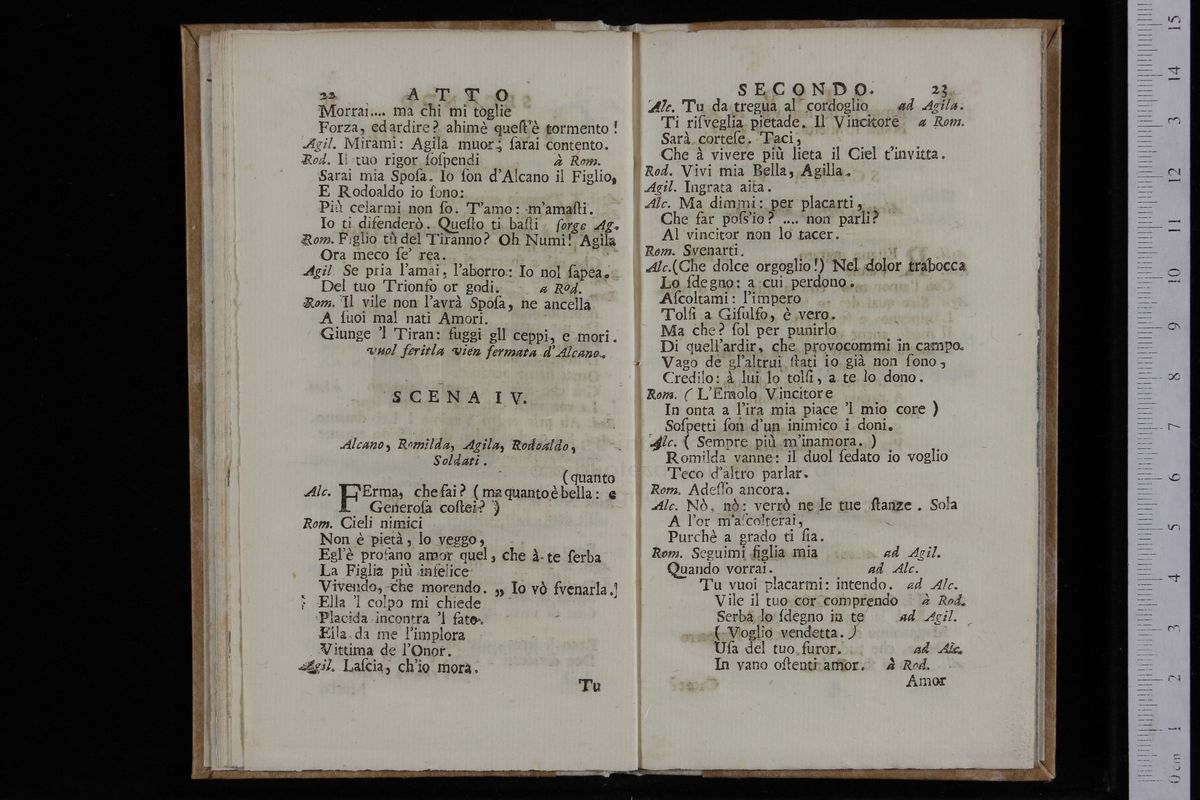 22 ATTO
Morrai.... ma chi mi toglie
Forza, ed ardire? ahimè queſt'è tormento!
Agil. Mirami: Agila muor; ſarai contento.
Rod. Il tuo rigor ſoſpendi à Rom.
Sarai mia Spoſa. Io ſon d'Alcano il Figlio,
E Rodoaldo io ſono:
Più celarmi non ſo. T'amo: m'amaſti.
Io ti difenderò. Queſto ti baſti ſorge Ag.
Rom. Figlio tù del Tiranno? Oh Numi! Agila
Ora meco ſe' rea.
Agil Se pria l'amai, l'aborro: Io nol ſapea.
Del tuo Trionfo or godi. a Rod.
Rom. Il vile non l'avrà Spoſa, ne ancella
A ſuoi mal nati Amori.
Giunge 'l Tiran: fuggi gll ceppi, e mori.
vuol ferirla vien fermata d'Alcano.
SCENA IV.
Alcano, Romilda, Agila, Rodoaldo,
Soldati.
(quanto
Alc. FErma, che fai? (ma quanto è bella: e
Generoſa coſtei?)
Rom. Cieli nimici
Non è pietà, lo veggo,
Egl'è profano amor quel, che à te ſerba
La Figlia più infelice
Vivendo, che morendo. „ Io vò ſvenarla.]
Ella 'l colpo mi chiede
Placida incontra 'l fato.
Ella da me l'implora
Vittima de l'Onor.
Agil. Laſcia, ch'io mora.
Tu
SECONDO. 23
Alc. Tu da tregua al cordoglio ad Agila.
Ti riſveglia pietade. Il Vincitore a Rom.
Sarà corteſe. Taci,
Che à vivere più lieta il Ciel t'invitta.
Rod. Vivi mia Bella, Agilla.
Agil. Ingrata aita.
Alc. Ma dimmi: per placarti,
Che far poſs'io? .... non parli?
Al vincitor non lo tacer.
Rom. Svenarti.
Alc. (Che dolce orgoglio!) Nel dolor trabocca
Lo ſdegno: a cui perdono.
Aſcoltami: l'impero
Tolſi a Giſulfo, è vero.
Ma che? ſol per punirlo
Di quell'ardir, che provocommi in campo.
Vago de gl'altrui ſtati io già non ſono,
Credilo: à lui lo tolſi, a te lo dono.
Rom. (L'Emolo Vincitore
In onta a l'ira mia piace 'l mio core)
Soſpetti ſon d'un inimico i doni.
Alc. (Sempre più m'inamora.)
Romilda vanne: il duol ſedato io voglio
Teco d'altro parlar.
Rom. Adeſſo ancora.
Alc. Nò, nò: verrò ne le tue ſtanze. Sola
A l'or m'aſcolterai,
Purchè a grado ti ſia.
Rom. Seguimi figlia mia ad Agil.
Quando vorrai. ad Alc.
Tu vuoi placarmi: intendo. ad Alc.
Vile il tuo cor comprendo à Rod.
Serba lo ſdegno in te ad Agil.
(Voglio vendetta.)
Uſa del tuo furor. ad Alc.
In vano oſtenti amor. à Rod.
Amor